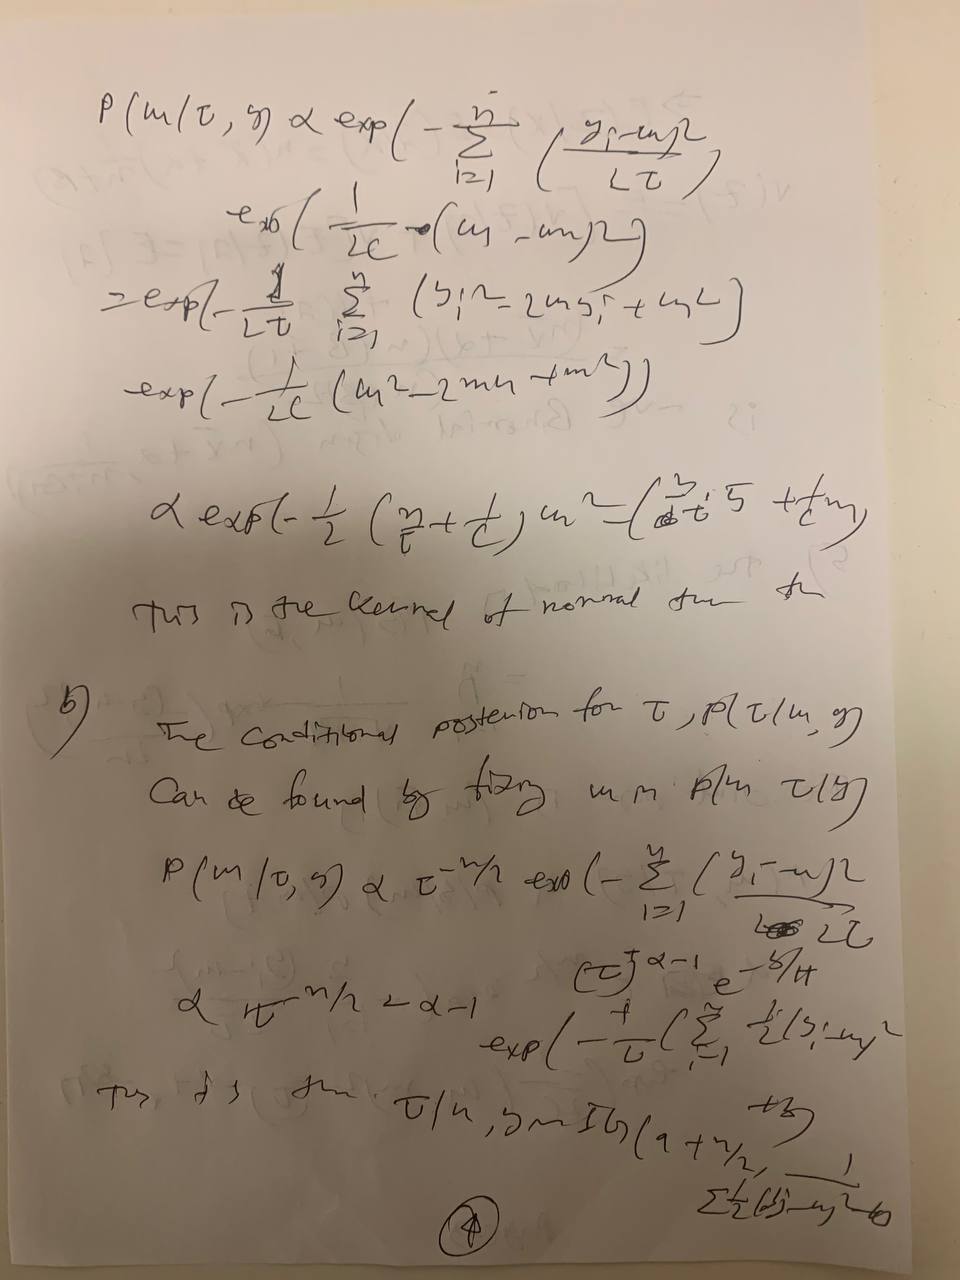 P(m/τ, y) α exp(- n Σ i=1 ( (yi-m)2 / 2τ )
exp( 1/2c -(m - m)2)
= exp(- 1/2τ n Σ i=1 (yi2 - 2myi + m2)
exp(- 1/2c (m2 - 2mm + m2))
α exp(- 1/2 (n/τ + 1/c) m2 - ( + 1/c m)
This is the kernel of normal
b)
The conditional posterior for τ, p(τ/m, y)
Can be found by fixing m in p(m τ/y)
P(m/τ, y) α τ-n/2 exp(- n Σ i=1 (yi-m)2 / 2τ
(τ)-α-1 e-
α τ-n/2 - α-1 exp(- 1/τ ( n Σ i=1 1/2(yi-m)2
+b)
This is τ/m, y ~ IG(a + n/2, 1 / Σ1/2(yi-m)2 b
4